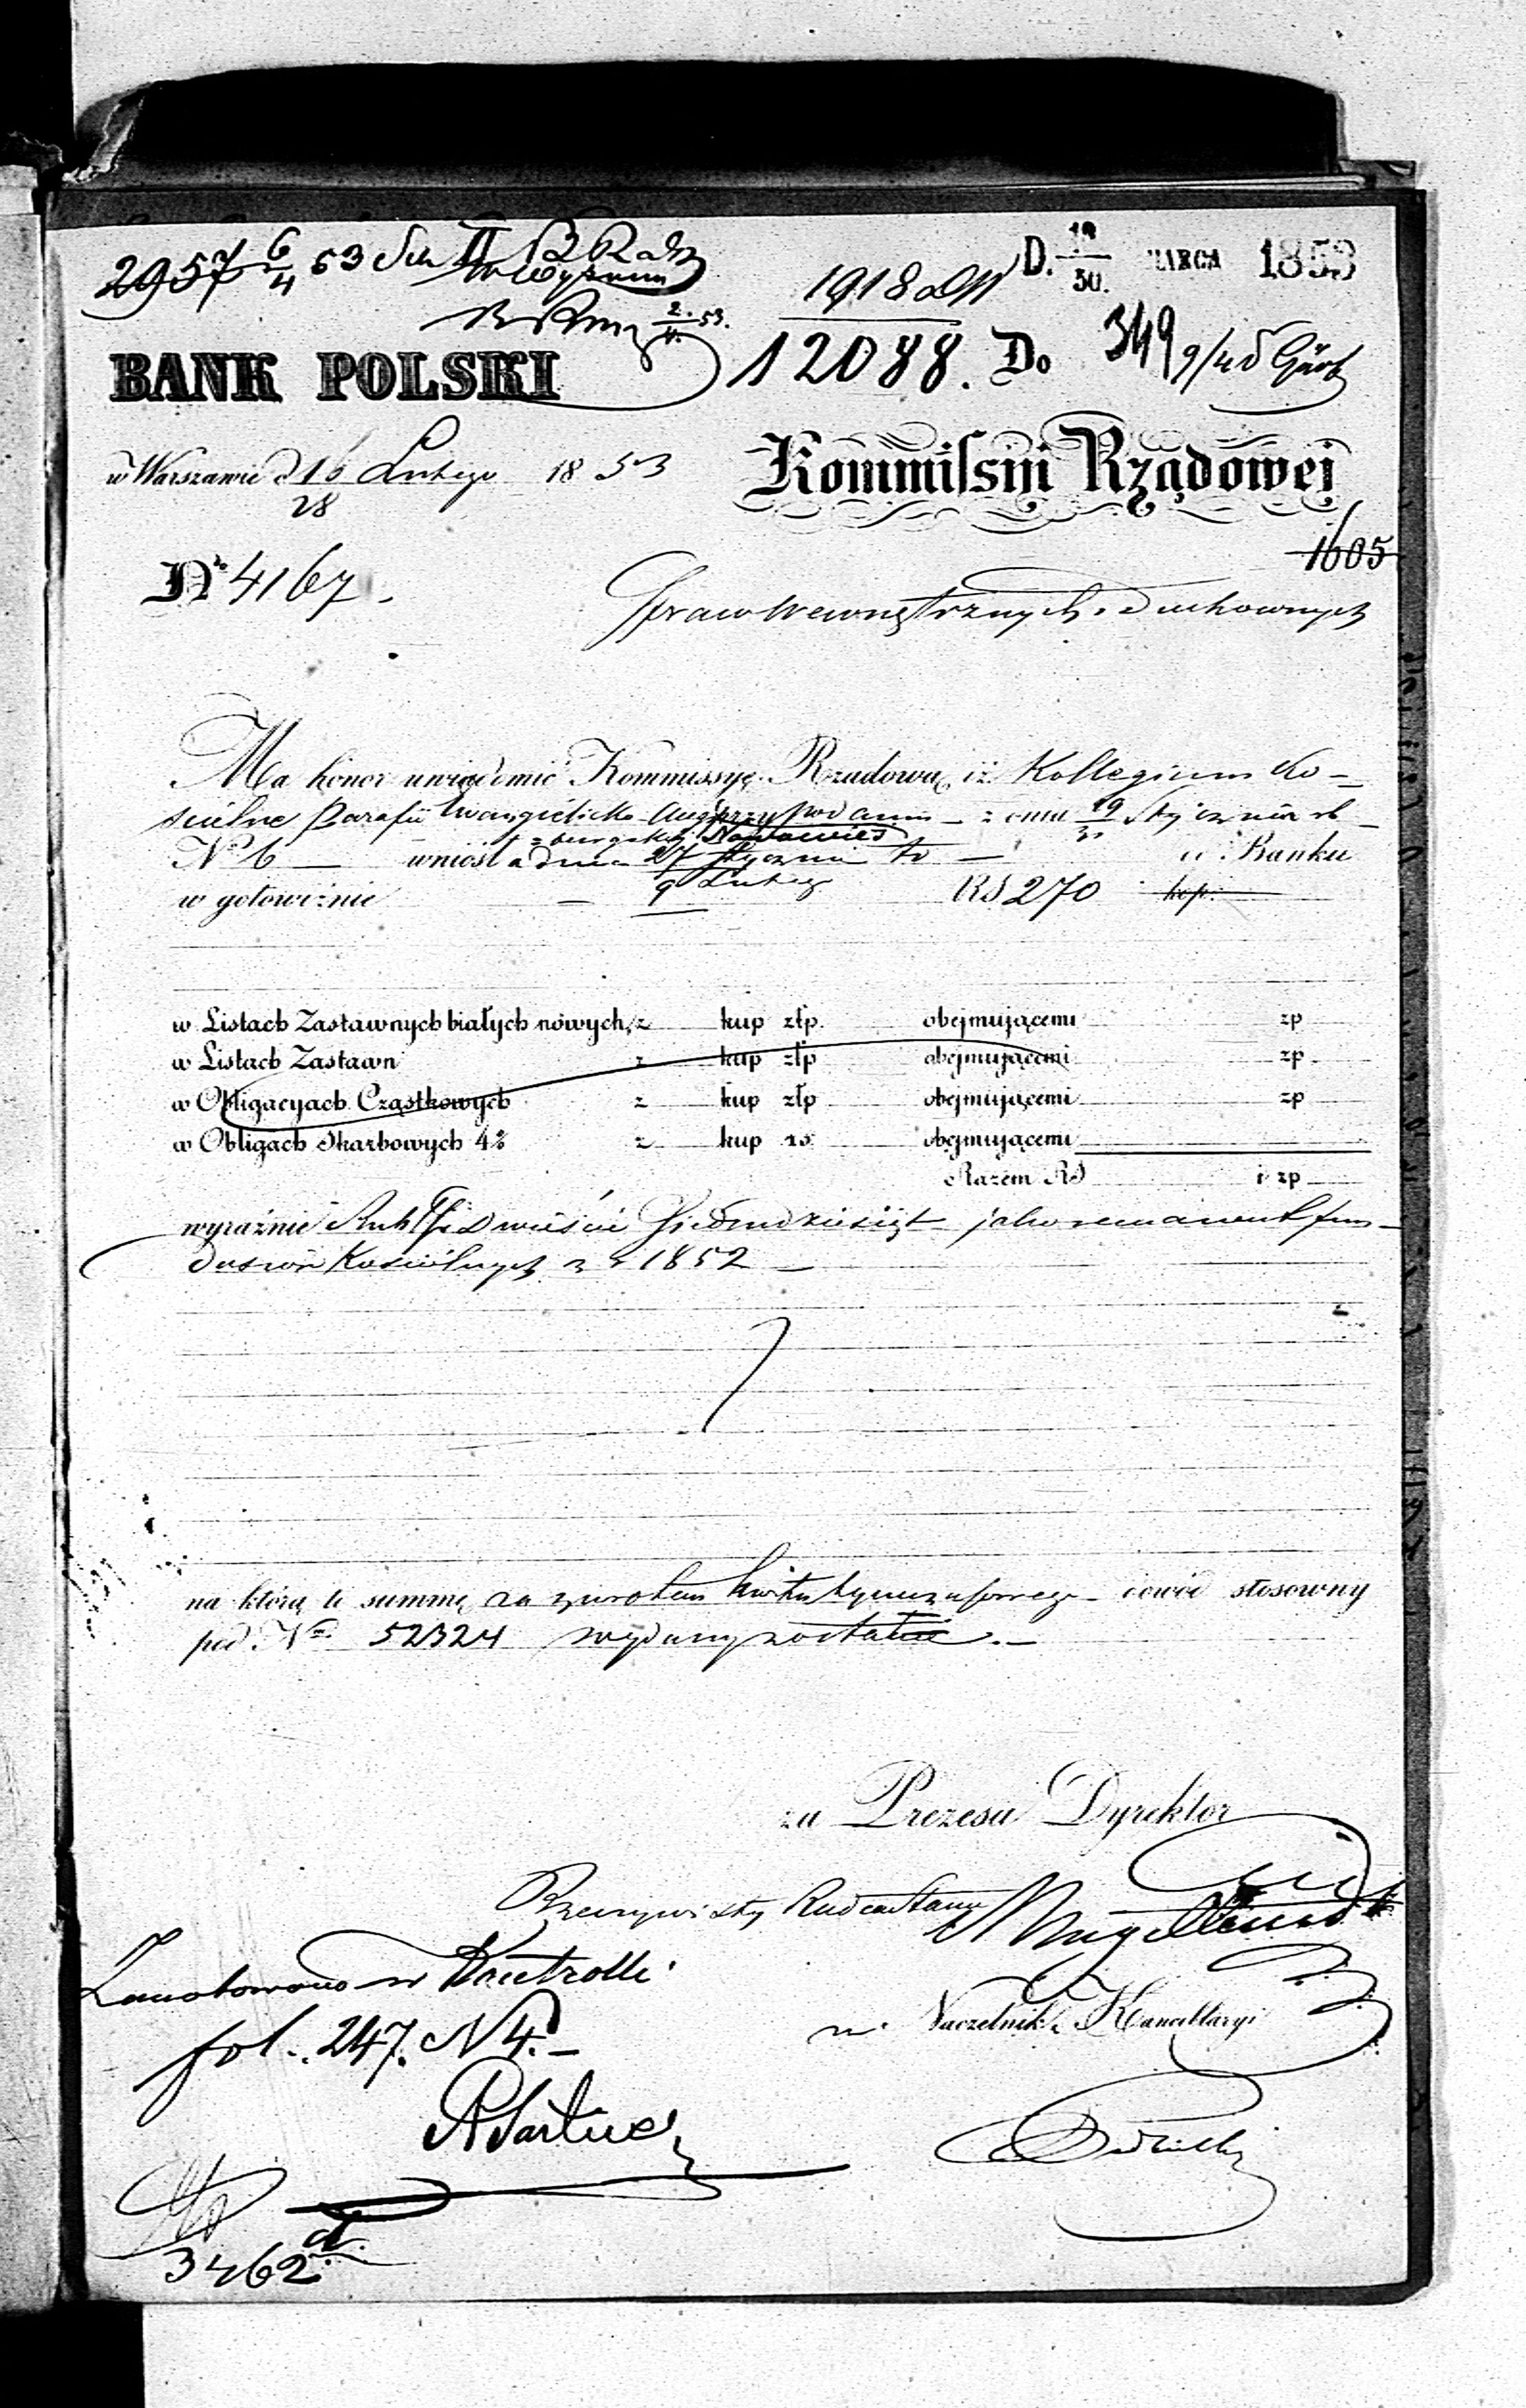 2957 6/4 53
D. 18/30. MARCA 1853
1918
2/4. 53.
BANK POLSKI
12088. Do 349 9/4
w Warszawie d 16/28 Lutego 1853
Kommissyi Rządowej
1605
N° 4167.
Spraw Wewnętrznych i Duchownych
Ma honor uwiadomić Kommissyę Rządową iż Kollegium Ko-
ścielne Parafii Ewangielicko-Augs przy podaniu z dnia 19/31 Stycznia rb
burgskiej Nowawieś
N° 6 — wniosła dnia 27 Stycznia / 9 Lutego tr — do Banku
w gotowiźnie — RS 270 kop.
w Listach Zastawnych białych nowych, z kup złp. obejmującemi zp
w Listach Zastawn z kup złp obejmującemi zp
w Obligacyach Cząstkowych z kup złp obejmującemi zp
w Obligach Skarbowych 4% z kup rs obejmującemi
Razem RS i zp
wyraźnie Rubli Sr Dwieście Siedmdziesiąt jako remanent fun-
duszów Kościelnych z r 1852 —
na którą to summę za zwrotem kwitu tymczasowego dowód stosowny
pod Nrem 52324 wydany został.—
za Prezesa Dyrektor
Rzeczywisty Radca Stanu
Zanotowano w Kontrolli
fol. 247. N 4.—
Naczelnik Kancellaryi
3462